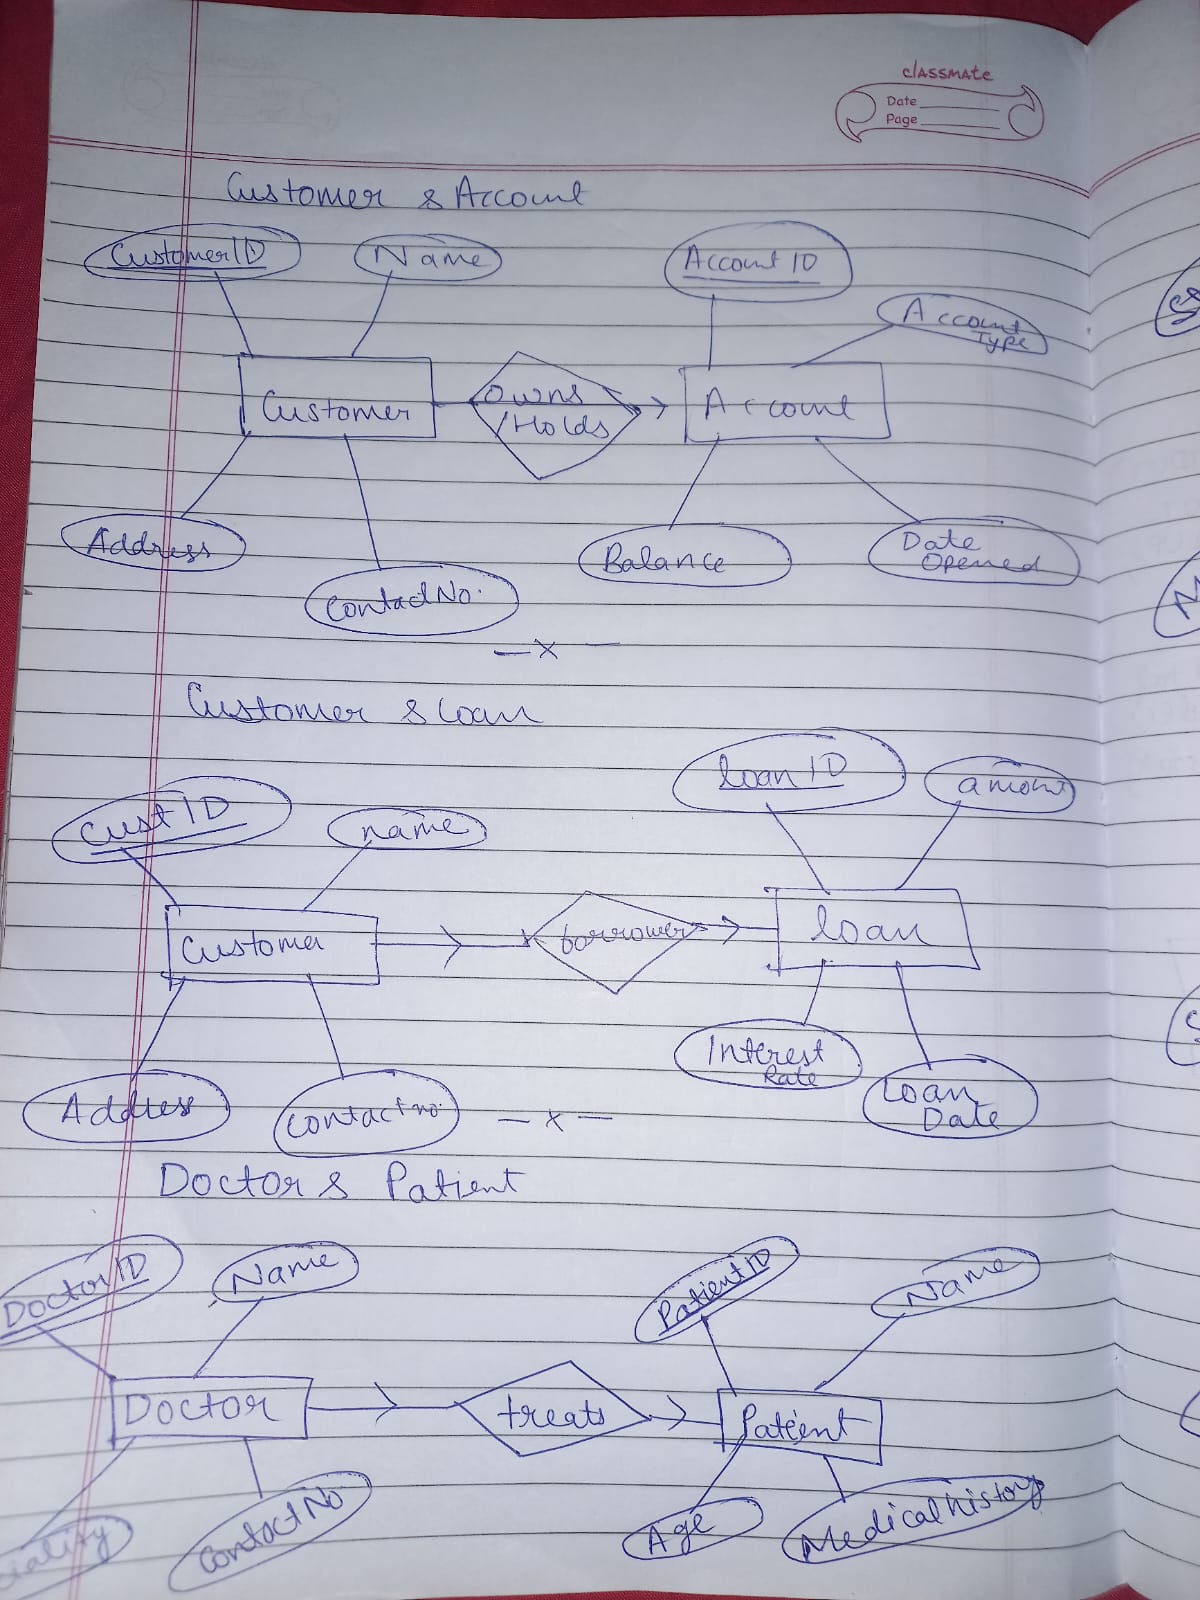 classmate
Date
Page
Customer & Account
CustomerID
Name
Account ID
Account
Type
Customer
owns
/Holds
Account
Address
Balance
Date
Opened
ContactNo.
— x —
Customer & Loan
loan ID
amount
Cust ID
name
Customer
borrower
loan
Interest
Rate
Address
Contact no.
— x —
Loan
Date
Doctor & Patient
DoctorID
Name
PatientID
Name
Doctor
treats
Patient
ContactNo
Age
Medical history